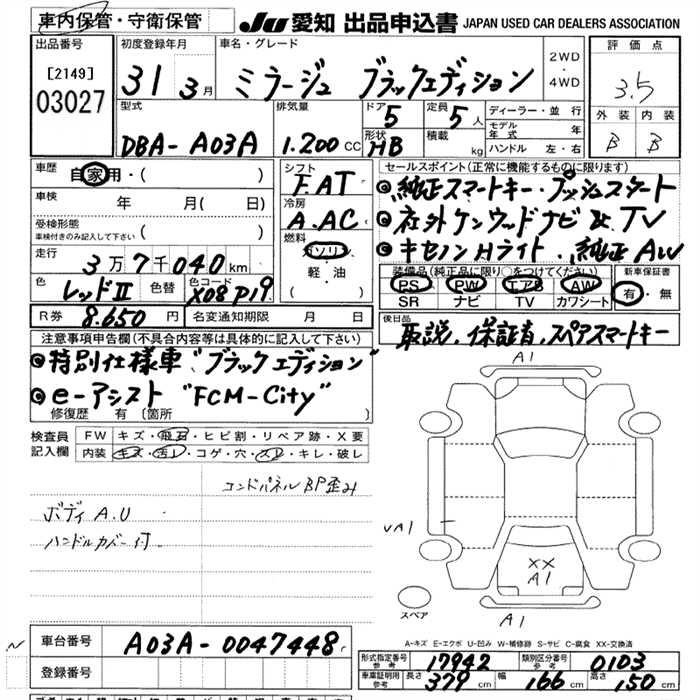 車内保管・守衛保管
JU 愛知 出品申込書 JAPAN USED CAR DEALERS ASSOCIATION
出品番号
[2149]
03027
初度登録年月
31 3月
車名・グレード
ミラージュ ブラックエディション
2WD
・
4WD
評価点
3.5
外装 内装
B B
型式
DBA-A03A
排気量
1.200 CC
ドア
5
定員
5人
形状
HB
積載
kg
ディーラー・並行
モデル年式 年
ハンドル 左・右
車歴
自家用・( )
車検
年 月( 日)
受検形態
車検付きのみ記入して下さい
( )
走行
3万7千040km
色
レッドII
色替
色コード
X08 P19
R券 8.650円
名変通知期限 月 日
シフト
F.AT
冷房
A.AC
燃料
ガソリン
・
軽・油
( )
セールスポイント(正常に機能するものに限ります)
◎純正スマートキー・プッシュスタート
◎社外ケンウッドナビ & TV
◎キセノンHライト.純正AW
装備品(純正品に限り○をつけてください)
PS PW エアB AW
SR ナビ TV カワシート
新車保証書
有・無
後日品
取説.保証書.スペアスマートキー
注意事項申告欄(不具合内容等は具体的に記入して下さい)
◎特別仕様車"ブラックエディション"
◎e-アシスト "FCM-City"
修復歴 有 〔箇所 〕
検査員記入欄
FW キズ・飛石・ヒビ割・リペア跡・X要
内装 キズ・汚レ・コゲ・穴・スレ・キレ・破レ
コンドパネルBP歪み
ボディ A.U
ハンドルカバー付
A1
VA1
XX
A1
スペア
A1
A-キズ E-エクボ U-凹み W-補修跡 S-サビ C-腐食 XX-交換済
車台番号 A03A-0047448
登録番号
形式指定番号 参考 17942
類別区分番号 参考 0103
車庫証明用 参考
長さ 379cm
幅 166cm
高さ 150cm